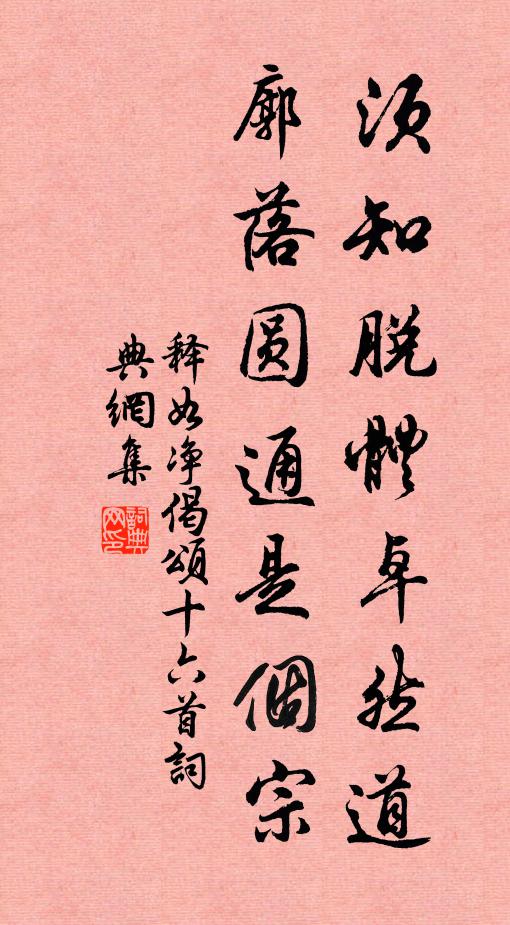 須知脱體卓然道
廓落圓通是個宗
釋如净偈頌十六首詞
典網集
詞典
网印